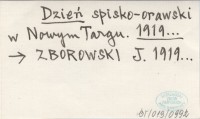 Dzień spisko-orawski
w Nowym Targu. 1919...
→ ZBOROWSKI J. 1919...